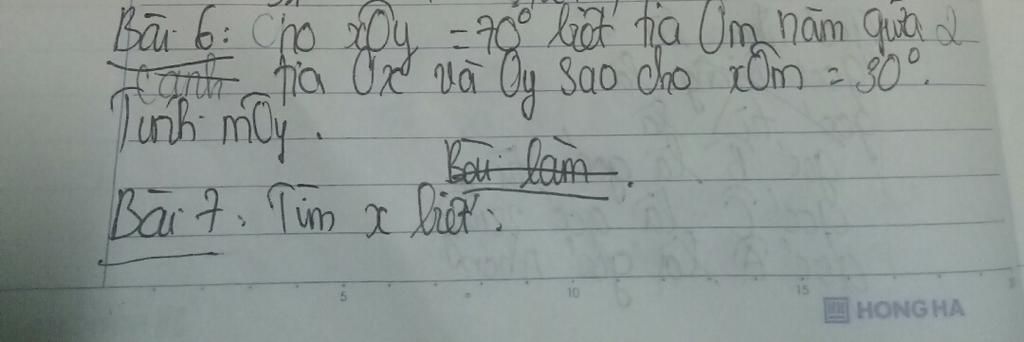 Bài 6: Cho xOy = 70° biết tia Om nằm giữa 2
cạnh tia Ox và Oy sao cho xOm = 30°.
Tính mOy.
Bài làm.
Bài 7: Tìm x biết:
5 10 15
HONG HA